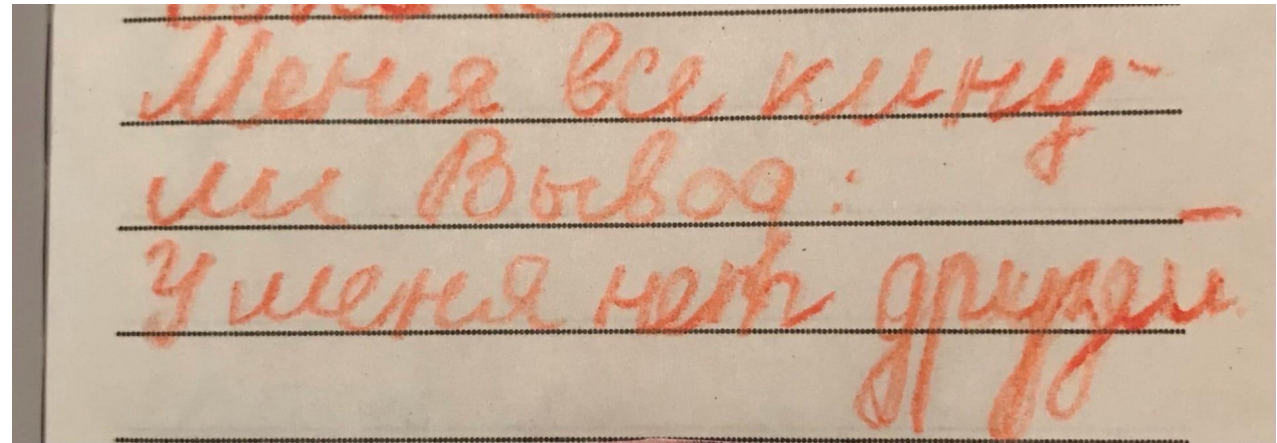 Меня все кину-
ли Вывод:
У меня нет друзей